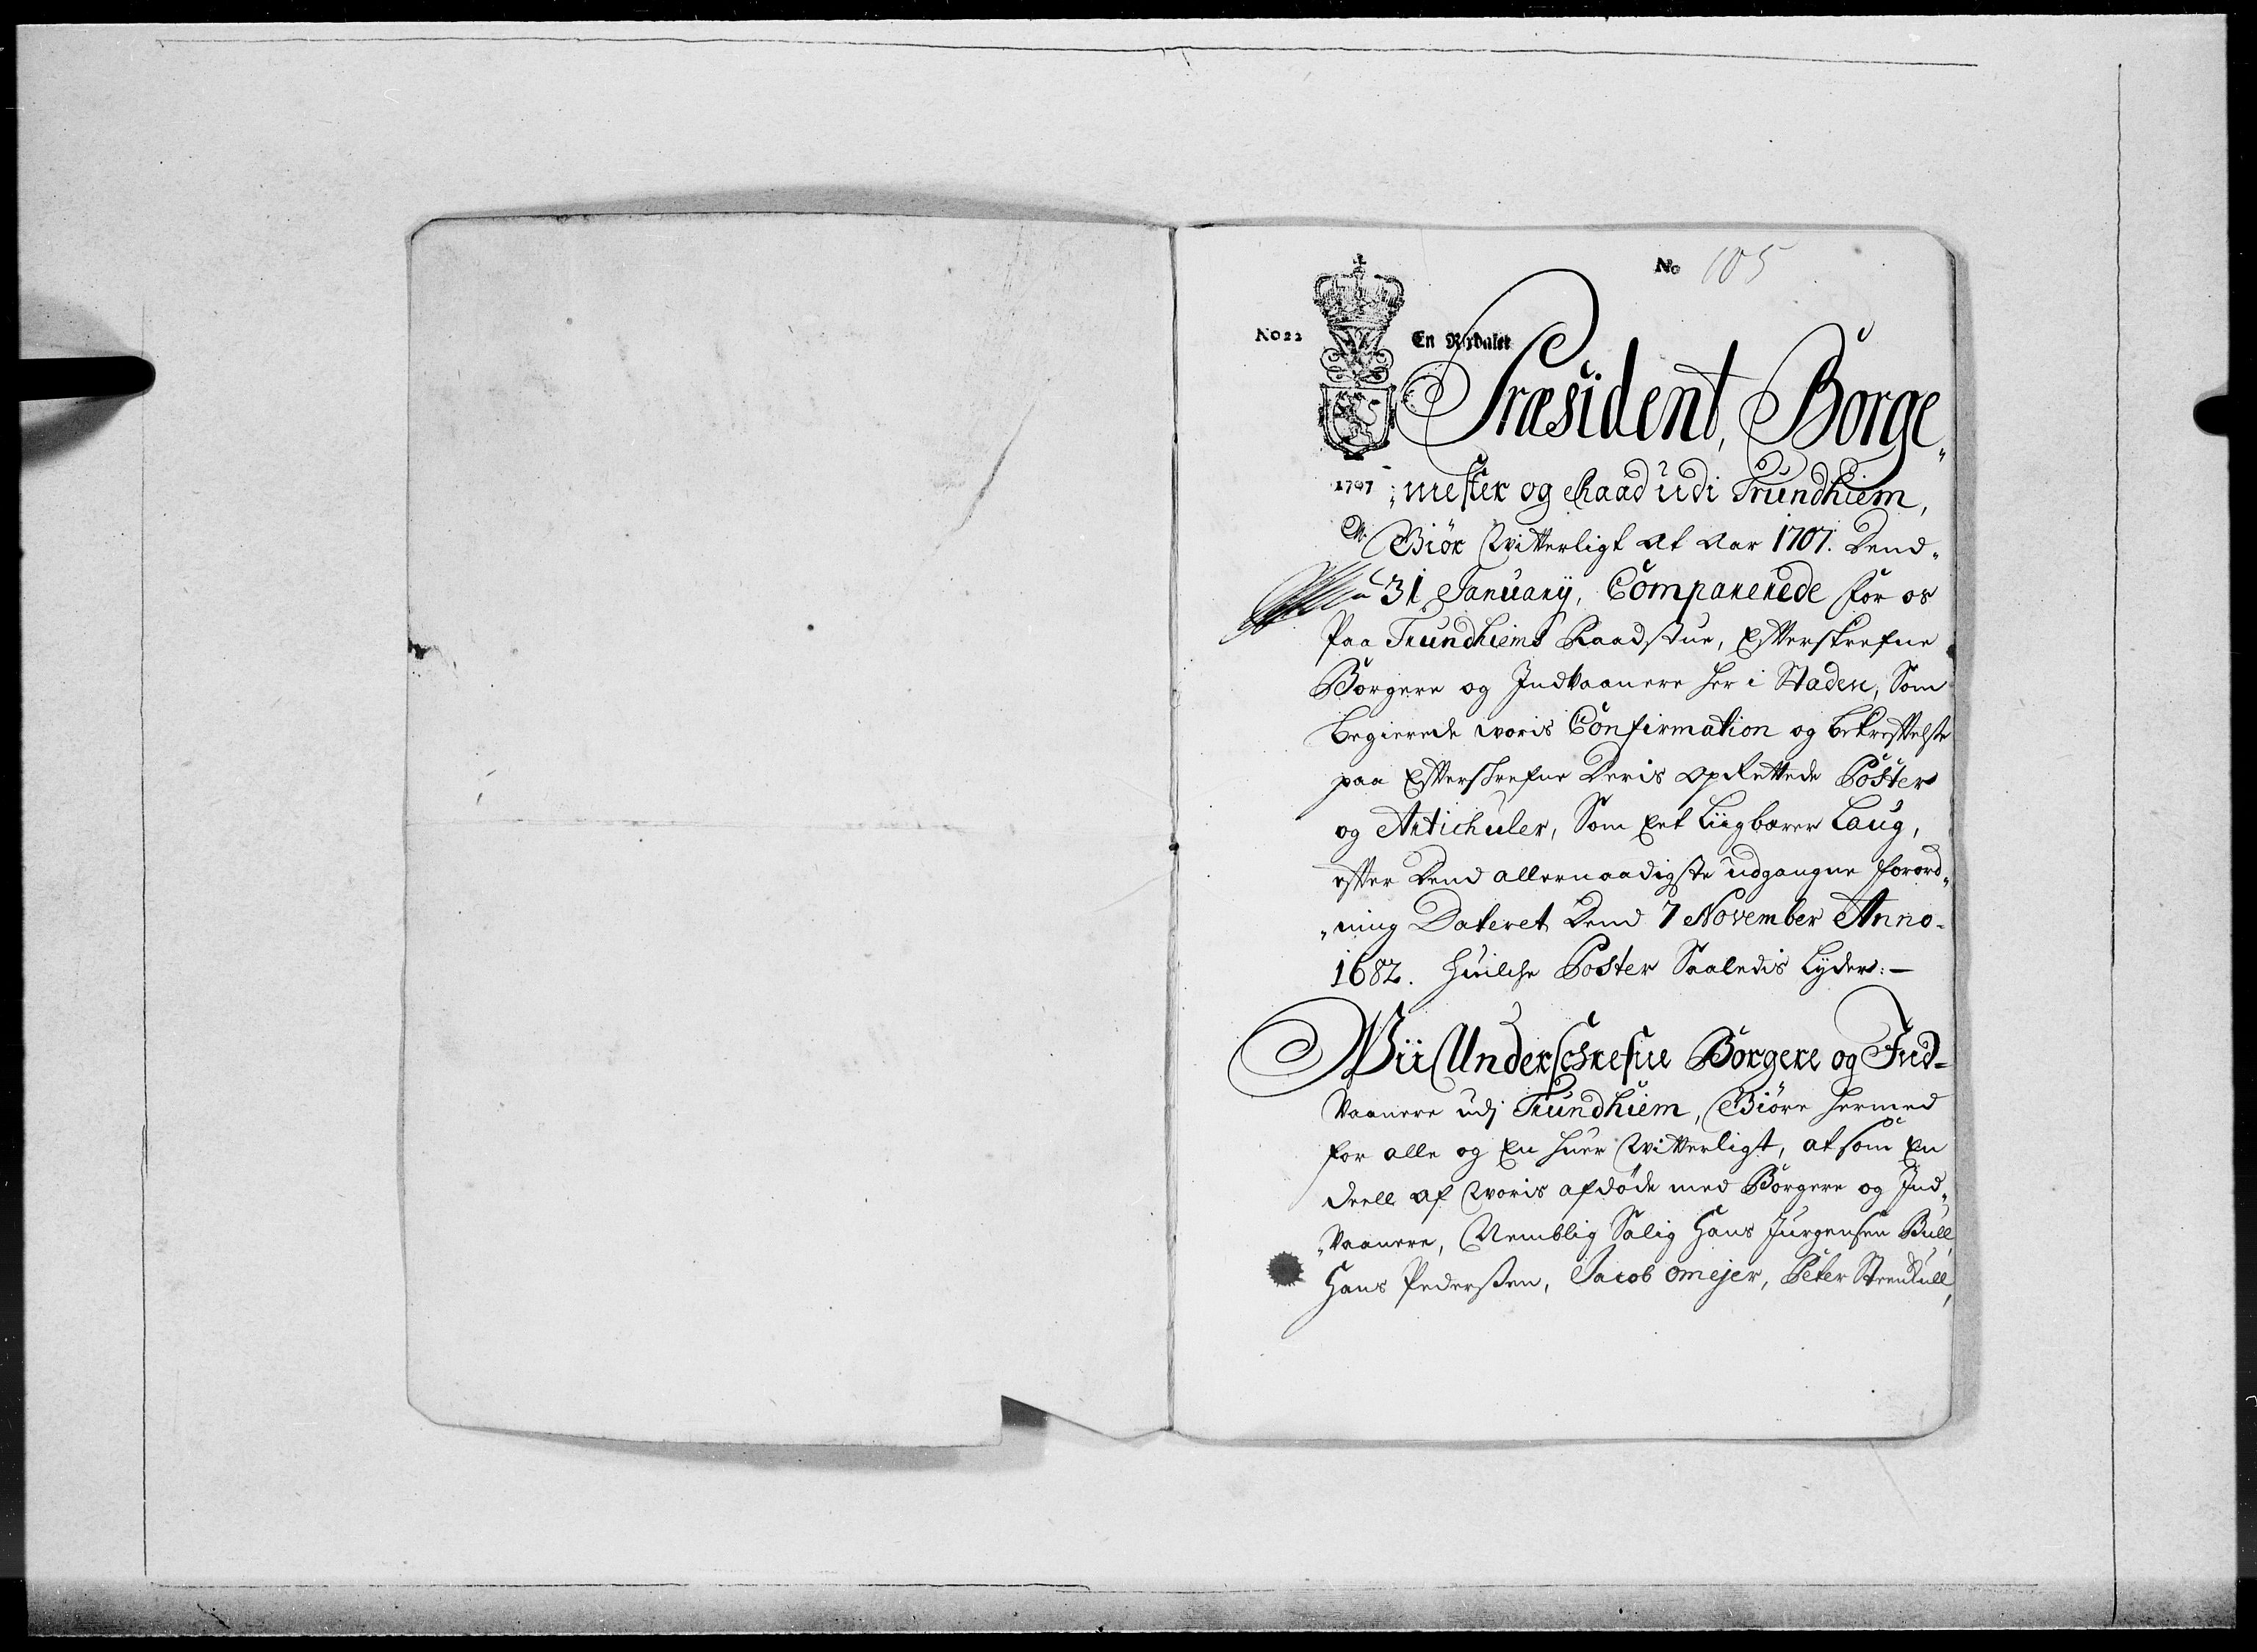 No 105
No 22
En Rixdaler
Præsident, Borge„
1707 „mester og Raad udi Trundhiem,
Giør Witterligt at Aar 1707. Dend„
31 January, Comparerede for os
Paa Trundhiems Raadstue, Effterskrefne
Borgere og Indvaanere her i Staden, Som
begierede woris Confirmation og bekrefftelse
paa Effterskrefne Deris opRettede Poster
og Artichuler, Som Eet Liigbærer Laug,
effter Dend allernaadigste udgangne Forord„
„ning Dateret Dend 7 November Anno
1682. Huilche Poster Saaledis Lyder:—
Wii Underschrefne Borgere og Ind-
Vaanere udj Trundhiem, Giøre hermed
for alle og En huer Witterligt, at som En
Deell af Woris afdøde med Borgere og Ind„
„Vaanere, Nemblig Salig Hans Jurgensen Bull,
Hans Pederssen, Jacob Omejer, Peter Steenkull,